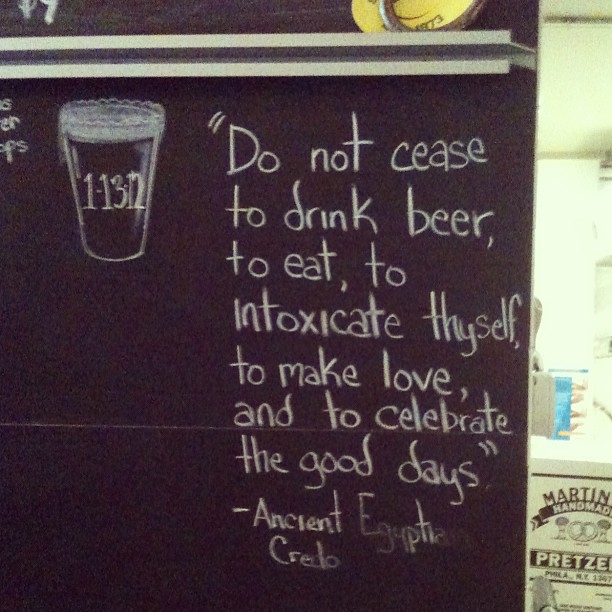 1873
1-13-12
"Do not cease
to drink beer,
to eat, to
intoxicate thyself,
to make love,
and to celebrate
the good days"
- Ancient Egyptian
Credo
MARTIN
HANDMAD
PRETZE
PHILA., N.Y.